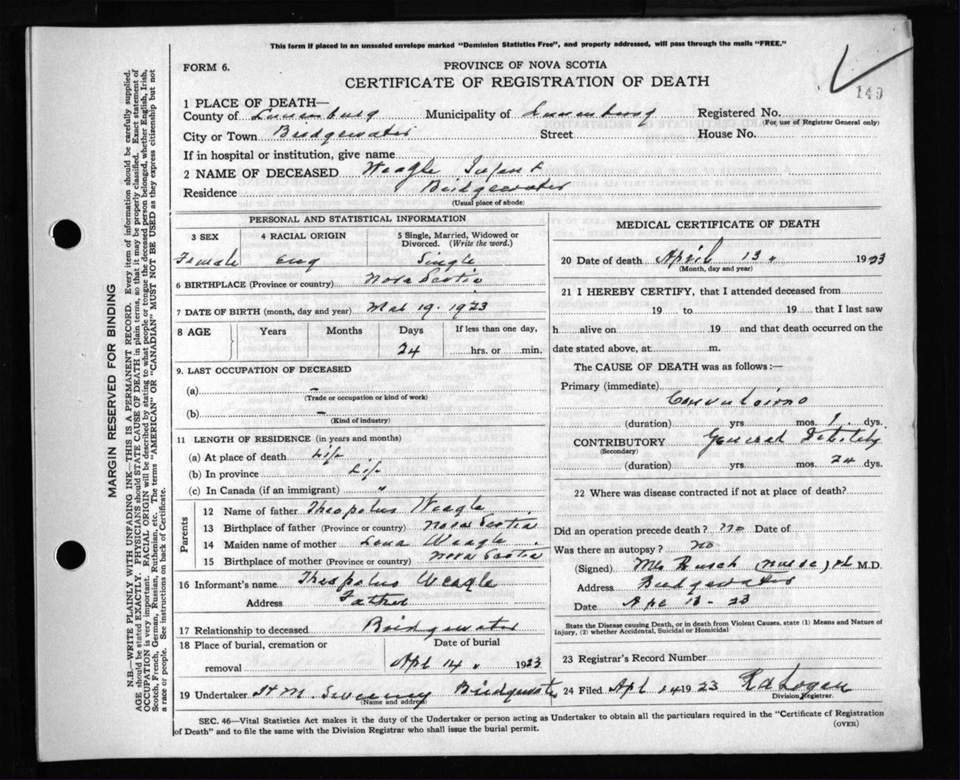 This form if placed in an unsealed envelope marked "Dominion Statistics Free", and properly addressed, will pass through the mails "FREE."
FORM 6.
PROVINCE OF NOVA SCOTIA
CERTIFICATE OF REGISTRATION OF DEATH
149
1 PLACE OF DEATH—
County of Lunenburg Municipality of Lunenburg Registered No.
(For use of Registrar General only)
City or Town Bridgewater Street House No.
If in hospital or institution, give name
2 NAME OF DECEASED Weagle Infant
Residence Bridgewater
(Usual place of abode)
MARGIN RESERVED FOR BINDING
N.B.—WRITE PLAINLY WITH UNFADING INK—THIS IS A PERMANENT RECORD. Every item of information should be carefully supplied.
AGE should be stated EXACTLY. PHYSICIANS should STATE CAUSE OF DEATH in plain terms, so that it may be properly classified. Exact statement of
OCCUPATION is very important. RACIAL ORIGIN will be described by stating to what people or tongue the deceased person belonged, whether English, Irish,
Scotch, French, German, Russian, Ruthenian, etc. The terms "AMERICAN" OR "CANADIAN" MUST NOT BE USED as they express citizenship but not
a race or people. See instructions on back of Certificate.
PERSONAL AND STATISTICAL INFORMATION
3 SEX 4 RACIAL ORIGIN 5 Single, Married, Widowed or
Divorced. (Write the word.)
Female Eng Single
6 BIRTHPLACE (Province or country) Nova Scotia
7 DATE OF BIRTH (month, day and year) Mar 19. 1923
8 AGE Years Months Days If less than one day,
24 hrs. or min.
9. LAST OCCUPATION OF DECEASED
(a) –
(Trade or occupation or kind of work)
(b) –
(Kind of industry)
11 LENGTH OF RESIDENCE (in years and months)
(a) At place of death Life
(b) In province Life
(c) In Canada (if an immigrant) "
Parents
12 Name of father Theopolus Weagle
13 Birthplace of father (Province or country) Nova Scotia
14 Maiden name of mother Lena Weagle
15 Birthplace of mother (Province or country) Nova Scotia
16 Informant's name Theopolus Weagle
Address Father
17 Relationship to deceased Bridgewater
18 Place of burial, cremation or Date of burial
removal Apl 14 " 1923
19 Undertaker Sweeney Bridgewater
(Name and address)
MEDICAL CERTIFICATE OF DEATH
20 Date of death April 13 " 1923
(Month, day and year)
21 I HEREBY CERTIFY, that I attended deceased from
19 to 19 that I last saw
h alive on 19 and that death occurred on the
date stated above, at m.
The CAUSE OF DEATH was as follows:—
Primary (immediate)
Convulsions
(duration) yrs mos. 1 dys.
CONTRIBUTORY General Debility
(Secondary)
(duration) yrs mos. 24 dys.
22 Where was disease contracted if not at place of death?
Did an operation precede death? no Date of
Was there an autopsy? no
(Signed) Mrs (nurse) M.D.
Address Bridgewater
Date Apr 13 - 23
State the Disease causing Death, or in death from Violent Causes, state (1) Means and Nature of
Injury, (2) whether Accidental, Suicidal or Homicidal
23 Registrar's Record Number
24 Filed Apl 14 1923 Logan
Division Registrar.
SEC. 46—Vital Statistics Act makes it the duty of the Undertaker or person acting as Undertaker to obtain all the particulars required in the "Certificate of Registration
of Death" and to file the same with the Division Registrar who shall issue the burial permit.
(OVER)